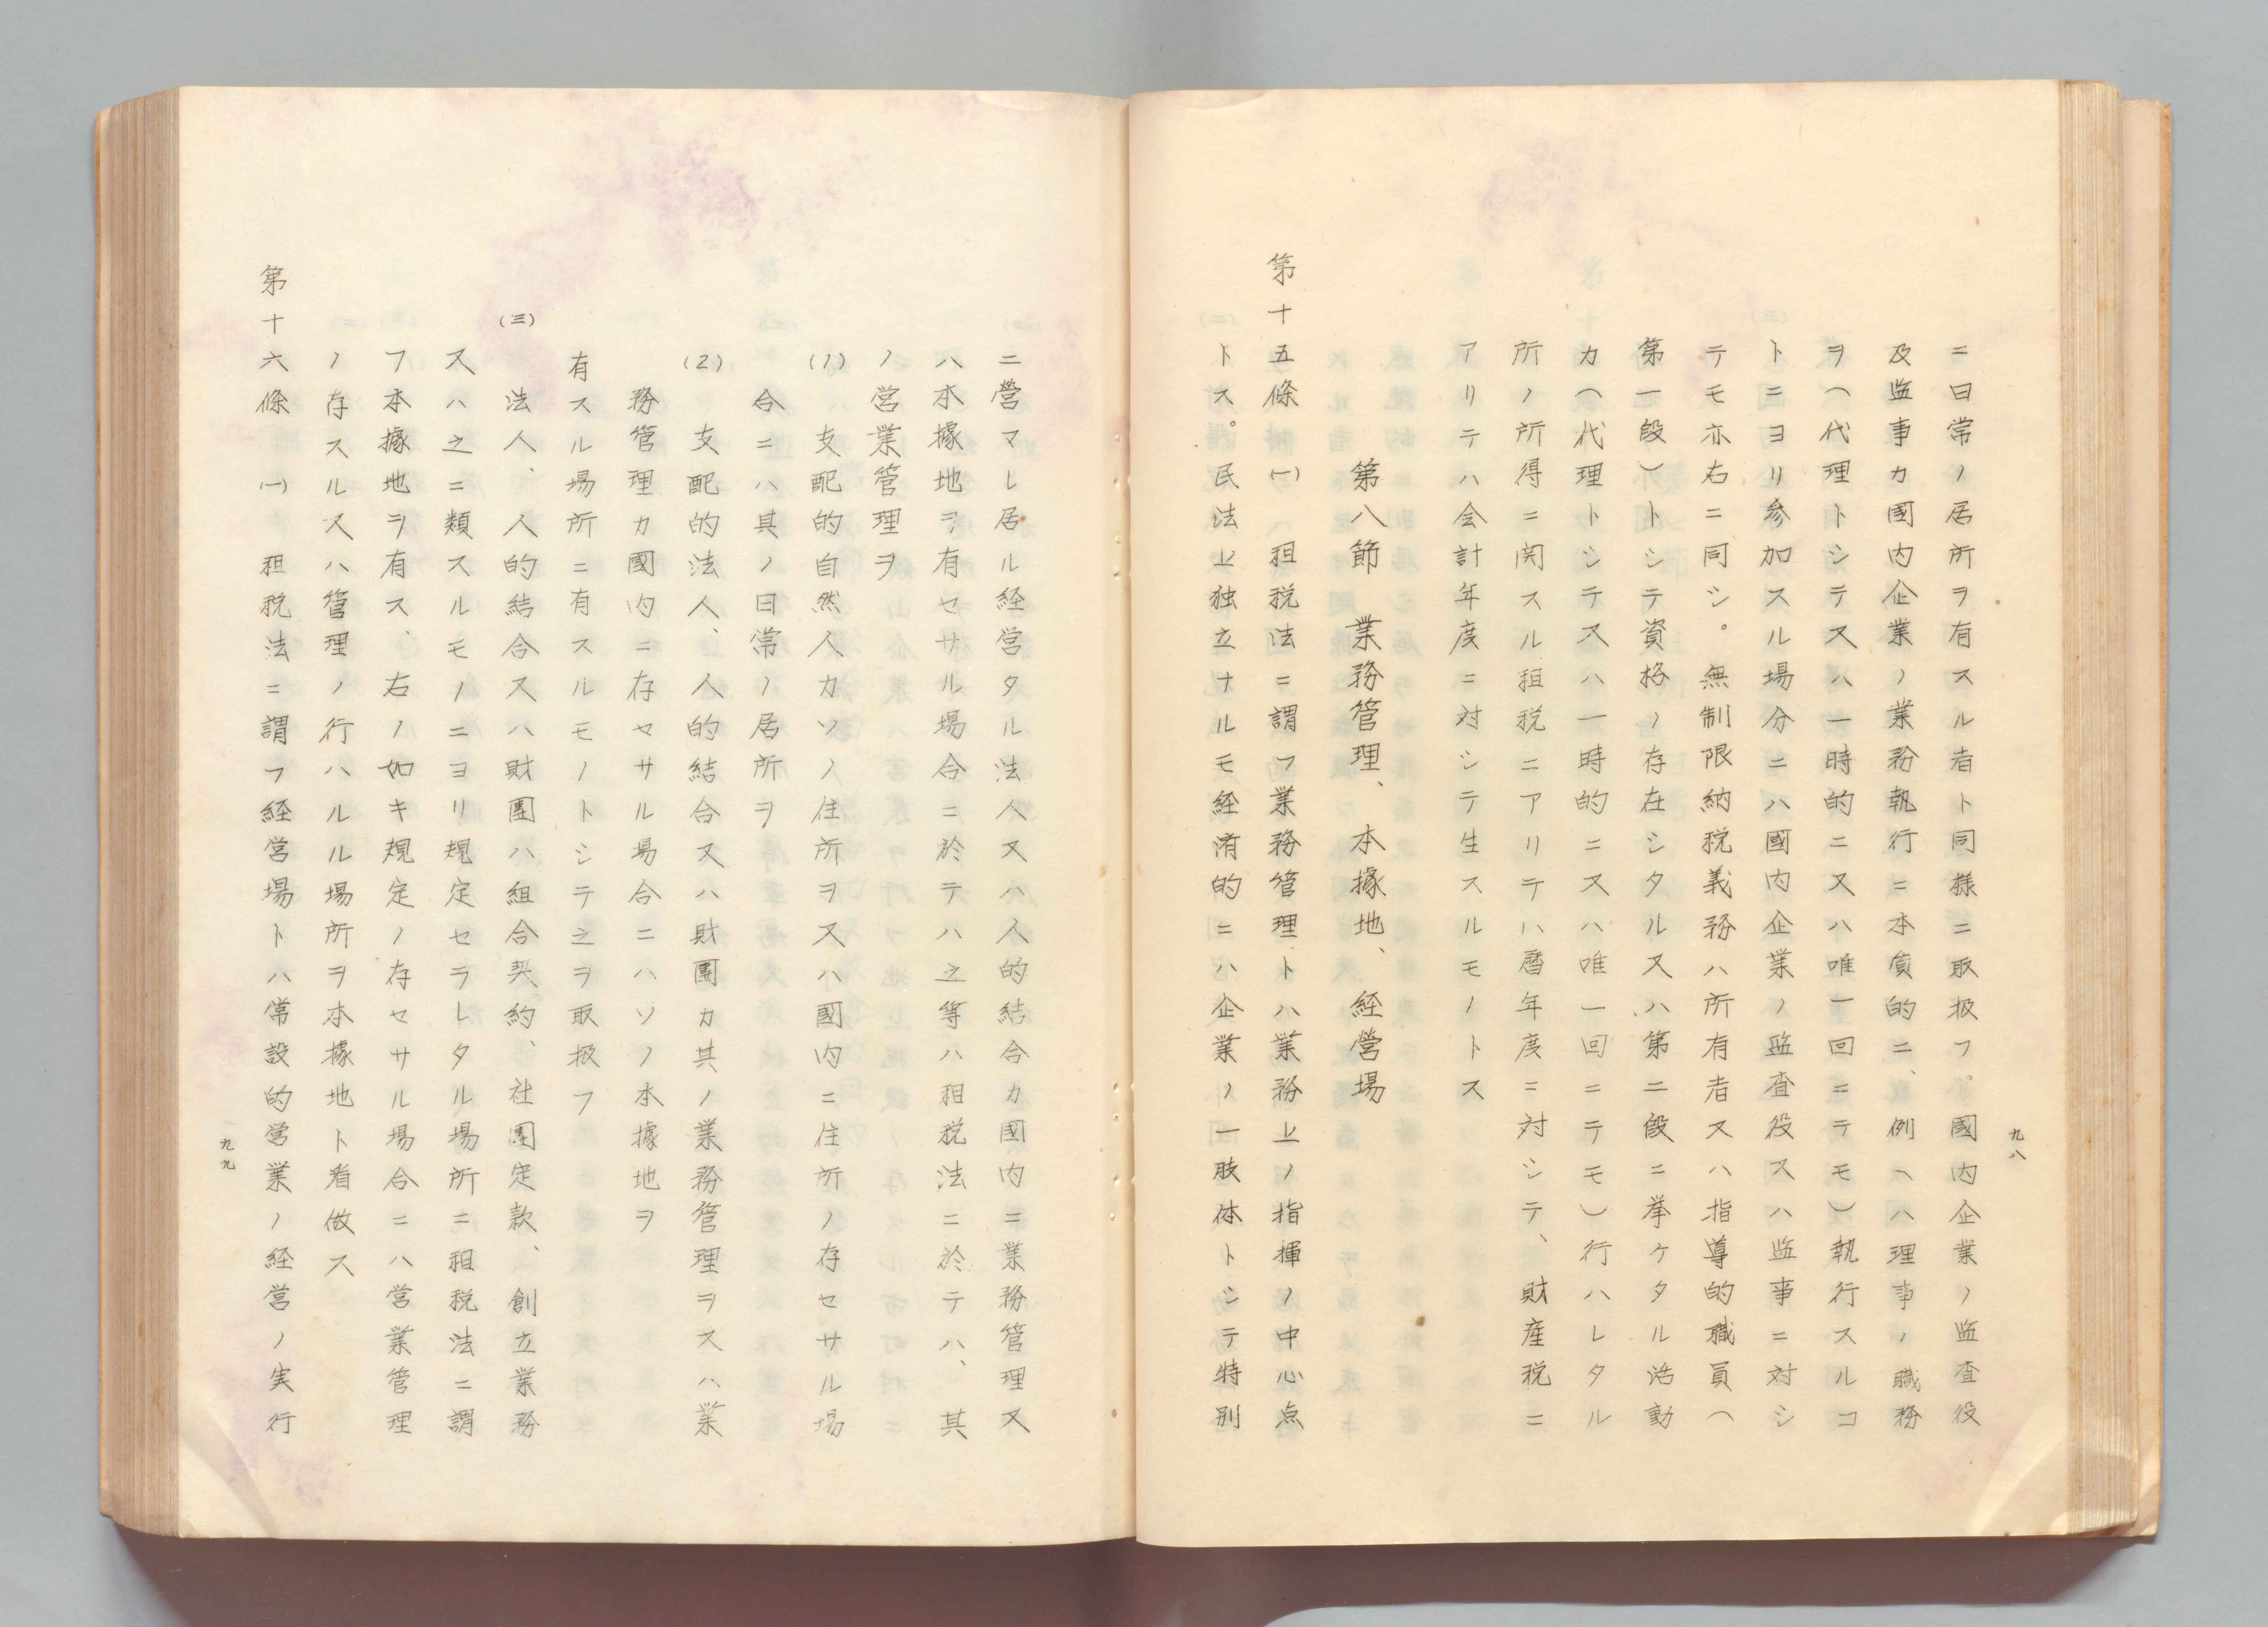 九八
ニ日常ノ居所ヲ有スル者ト同様ニ取扱フ。國内企業ノ監査役
及監事カ國内企業ノ業務執行ニ本質的ニ、例ヘハ理事ノ職務
ヲ（代理トシテ又ハ一時的ニ又ハ唯一回ニテモ）執行スルコ
トニヨリ参加スル場分ニハ國内企業ノ監査役又ハ監事ニ対シ
テモ亦右ニ同シ。無制限納税義務ハ所有者又ハ指導的職員（
第一段）トシテ資格ノ存在シタル又ハ第二段ニ挙ケタル活動
カ（代理トシテ又ハ一時的ニ又ハ唯一回ニテモ）行ハレタル
所ノ所得ニ関スル租税ニアリテハ暦年度ニ対シテ、財産税ニ
アリテハ会計年度ニ対シテ生スルモノトス
第八節　業務管理、本據地、経営場
第十五條　（一）　租税法ニ謂フ業務管理トハ業務上ノ指揮ノ中心点
トス。民法上独立ナルモ経済的ニハ企業ノ一肢体トシテ特別
ニ營マレ居ル経営タル法人又ハ人的結合カ國内ニ業務管理又
ハ本據地ヲ有セサル場合ニ於テハ之等ハ租税法ニ於テハ、其
ノ営業管理ヲ
（1）　支配的自然人カソノ住所ヲ又ハ國内ニ住所ノ存セサル場
合ニハ其ノ日常ノ居所ヲ
（2）　支配的法人、人的結合又ハ財團カ其ノ業務管理ヲ又ハ業
務管理カ國内ニ存セサル場合ニハソノ本據地ヲ
有スル場所ニ有スルモノトシテ之ヲ取扱フ
（三）　法人、人的結合又ハ財團ハ組合契約、社團定款、創立業務
又ハ之ニ類スルモノニヨリ規定セラレタル場所ニ租税法ニ謂
フ本據地ヲ有ス、右ノ如キ規定ノ存セサル場合ニハ営業管理
ノ存スル又ハ管理ノ行ハルル場所ヲ本據地ト看做ス
第十六條　（一）　租税法ニ謂フ経営場トハ常設的営業ノ経営ノ実行
九九